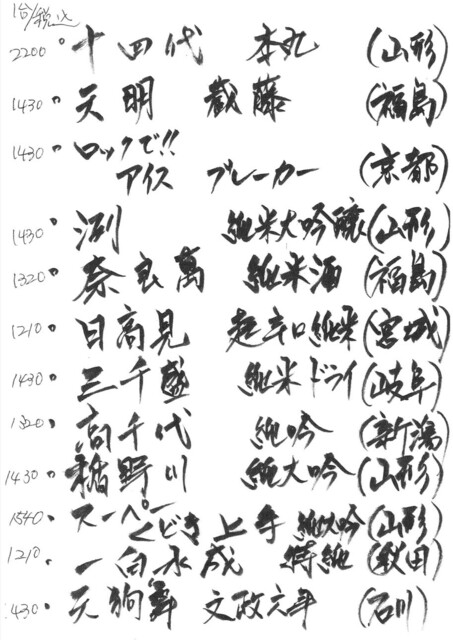 1合/税込
2200 十四代 本丸 (山形)
1430 天明 蔵藤 (福島)
1430 ロックで!!
アイス ブレーカー (京都)
1430 洌 純米大吟醸 (山形)
1320 奈良萬 純米酒 (福島)
1210 日高見 超辛口純米 (宮城)
1430 三千盛 純米ドライ (岐阜)
1320 高千代 純吟 (新潟)
1430 稲野川 純大吟 (山形)
1540 スーペー
くどき上手 純大吟 (山形)
1210 一白水成 特純 (秋田)
1430 天狗舞 文政六年 (石川)